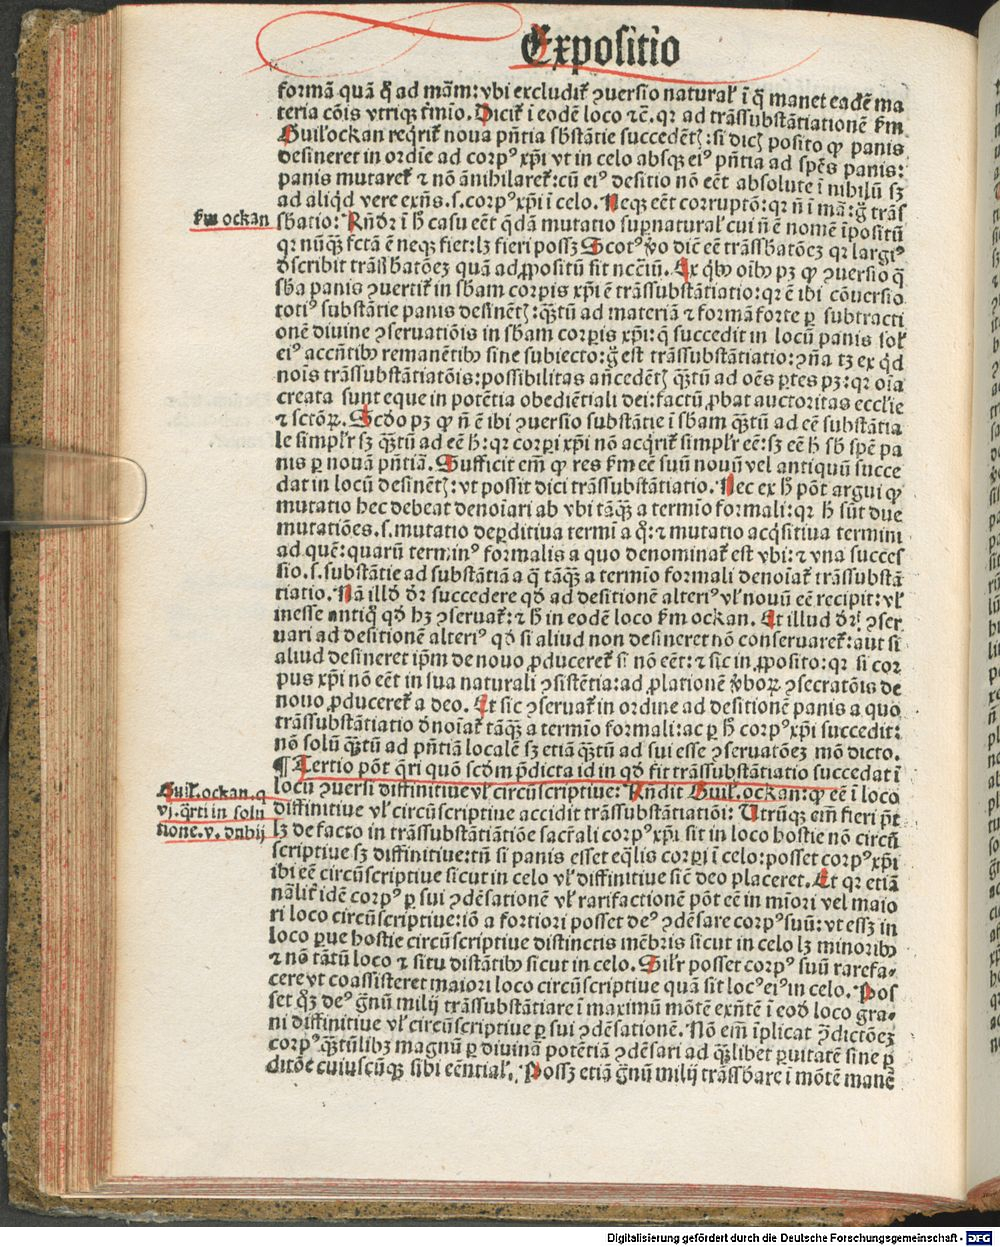 Expositio
formā quā q̄ ad mām: vbi excludit̄ ꝯuersio natural̄ ī q̄ manet eadē ma
teria cōis vtriqꝫ ťmīo. Dicit̄ ī eodē loco ⁊c̄. qꝛ ad trāssubstātiationē ẜm
Guil̄ ockan reqͥrit̄ noua pn̄tia sb̄stātie succedētꝭ: si dicꝭ posito qꝙ panis
desineret in ordīe ad corpꝰ xp̄i vt in celo absqꝫ eiꝰ pn̄tia ad spēs panis:
panis mutaret̄ ⁊ nō ānihilaret̄: cū eiꝰ desitio nō eēt absolute ī nihilū sꝫ
ad aliqͥd vere exn̄s. s. corpꝰ xp̄i ī celo. Neqꝫ eēt corruptō: qꝛ n̄ ī mā: g̊ trās
ẜm ockan
sb̄atio: Rn̄dr̄ ī h̄ casu eēt q̄dā mutatio suꝑnatural̄ cui n̄ ē nomē īpositū
qꝛ nūqꝫ̄ fctā ē neqꝫ fiet: lꝫ fieri possꝫ Scotꝰ v̊o diē eē trāssb̄atōeꝫ qꝛ largiꝰ
dscribit trāssb̄atōeꝫ quā ad ꝓpositū sit nccīū. Ex qͥbꝰ oībꝰ pꝫ ꝙ ꝯuersio q̄
sb̄a panis ꝯuertit̄ in sb̄am corpis xp̄i ē trāssubstātiatio: qꝛ ē ibi cōuersio
totiꝰ substātie panis desinētꝭ: qꝫ̄tū ad materiā ⁊ formā forte ꝑ subtracti
onē diuine ꝯseruatiōis in sb̄am corꝑis xp̄i: q̄ succedit in locū panis sol̄
eiꝰ accn̄tibꝰ remanētibꝰ sine subiecto: g̊ est trāssubstātiatio: ꝯn̄a tꝫ ex qͥd
nois trāssubstātiatōis: possibilitas an̄cedētꝭ qꝫ̄tū ad oēs ꝑtes pꝫ: qꝛ oīa
creata sunt eque in potētia obediētiali dei: factū ꝓbat auctoritas eccl̄ie
⁊ sctōꝝ. Scd̄o pꝫ ꝙ n̄ ē ibi ꝯuersio substātie ī sb̄am qꝫ̄tū ad eē substātia
le simpl̄r sꝫ qꝫ̄tū ad eē h̄: qꝛ corpi xp̄i nō acqͥrit̄ simpl̄r eē: sꝫ eē h̄ sb̄ spē pa
nis ꝑ nouā pn̄tiā. Sufficit em̄ ꝙ res ẜm eē suū nouū vel antiquū succe
dat in locū desinētꝭ: vt possit dici trāssubstātiatio. Nec ex h̄ pōt argui ꝙ
mutatio hec debeat denoīari ab vbi tāqꝫ̄ a termīo formali: qꝛ h̄ sūt due
mutatiōes. s. mutatio deꝑditiua termī a qͦ: ⁊ mutatio acqͥsitiua termini
ad quē: quarū terminꝰ formalis a quo denominat̄ est vbi: ⁊ vna succes
sio. s. substātie ad substātiā a q̄ tāqꝫ̄ a termīo formali denoīat̄ trāssubstā
tiatio. Nā illd̄ dr̄ succedere qd̄ ad desitionē alteriꝰ vl̄ nouū eē recipit: vl̄
inesse antiqͦ qd̄ hꝫ ꝯseruat̄: ⁊ h̄ in eodē loco ẜm ockan. Et illud dr̄ ꝯser
uari ad desitionē alteriꝰ qd̄ si aliud non desineret nō conseruaret̄: aut si
aliud desineret ip̄m de nouo ꝓduceret̄ si nō eēt: ⁊ sic in ꝓposito: qꝛ si cor
pus xp̄i nō eēt in sua naturali ꝯsistētia: ad ꝓlationē v̊boꝝ ꝯsecratōis de
nouo ꝓduceret̄ a deo. Et sic ꝯseruat̄ in ordine ad desitionē panis a quo
trāssubstātiatio dnoīat̄ tāqꝫ̄ a termīo formali: ac ꝑ h̄ corpꝰ xp̄i succedit:
nō solū qꝫ̄tū ad pn̄tiā localē sꝫ etiā qꝫ̄tū ad sui esse ꝯseruatōeꝫ mō dicto.
¶ Tertio pōt q̄ri quō scdm p̄dicta id in qd̄ fit trāssubstātiatio succedat ī
locū ꝯuersi diffinitiue vl̄ circūscriptiue: Rn̄dit Guil̄. ockan: ꝙ eē ī loco
Guil̄. ockan. q.
vj. q̄rti in solu
tione. v. dubij
diffinitiue vl̄ circūscriptiue accidit trāssubstātiatiōi: Vtrūqꝫ em̄ fieri pt̄
lꝫ de facto in trāssubstātiātiōe sacr̄ali corpꝰ xp̄i sit in loco hostie nō circū
scriptiue sꝫ diffinitiue: tn̄ si panis esset eq̄lis corpi ī celo: posset corpꝰ xp̄i
ibi eē circūscriptiue sicut in celo vl̄ diffinitiue sic̄ deo placeret. Et qꝛ etiā
nāl̄it̄ idē corpꝰ ꝑ sui ꝯdēsationē vl̄ rarifactionē pōt eē in mīori vel maio
ri loco circūscriptiue: iō a fortiori posset deꝰ ꝯdēsare corpꝰ suū: vt essꝫ in
loco ꝑue hostie circūscriptiue distinctis mēbris sicut in celo lꝫ minoribꝰ
⁊ nō tātū loco ⁊ situ distātibꝰ sicut in celo. Sil̄r posset corpꝰ suū rarefa⸗
cere vt coassisteret maiori loco circūscriptiue quā sit locꝰ eiꝰ in celo. Pos
set qͦꝫ deꝰ g̊nū milij trāssubstātiare ī maximū mōtē exn̄tē ī eod̄ loco gra⸗
ni diffinitiue vl̄ circūscriptiue ꝑ sui ꝯdēsationē. Nō em̄ īplicat ꝯdictōeꝫ
corpꝰ qꝫ̄tūlibꝫ magnū ꝑ diuinā potētiā ꝯdēsari ad qꝫ̄libet ꝑuitatē sine ꝑ
ditōe cuiuscūqꝫ sibi eēntial̄. Possꝫ etiā g̊nū milij trāssb̄are ī mōtē manē
Digitalisierung gefördert durch die Deutsche Forschungsgemeinschaft - DFG